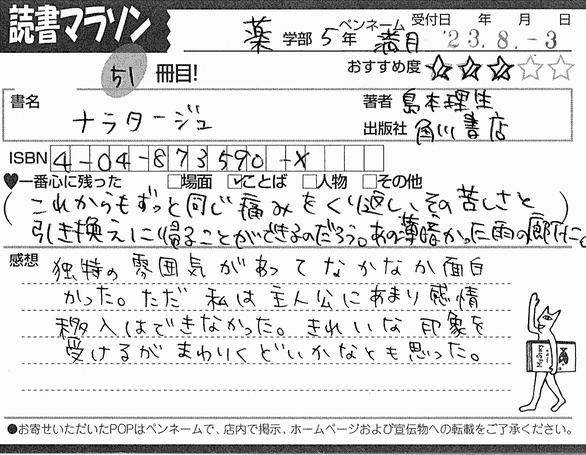 読書マラソン
薬 学部 5年 ペンネーム 満月 受付日 年 月 日 '23.8.-3
51 冊目! おすすめ度 ☆☆☆☆☆
書名 ナラタージュ 著者 島本理生
出版社 角川書店
ISBN 4-04-873590-X
♥一番心に残った □場面 ☑ことば □人物 □その他
(これからもずっと同じ痛みをくり返し、その苦しさと)
引き換えに帰ることができるのだろう。あの薄暗かった雨の廊下に。
感想 独特の雰囲気があってなかなか面白
かった。ただ私は主人公にあまり感情
移入はできなかった。きれいな印象を
受けるがまわりくどいかなとも思った。
●お寄せいただいたPOPはペンネームで、店内で掲示、ホームページおよび宣伝物への転載をご了承ください。